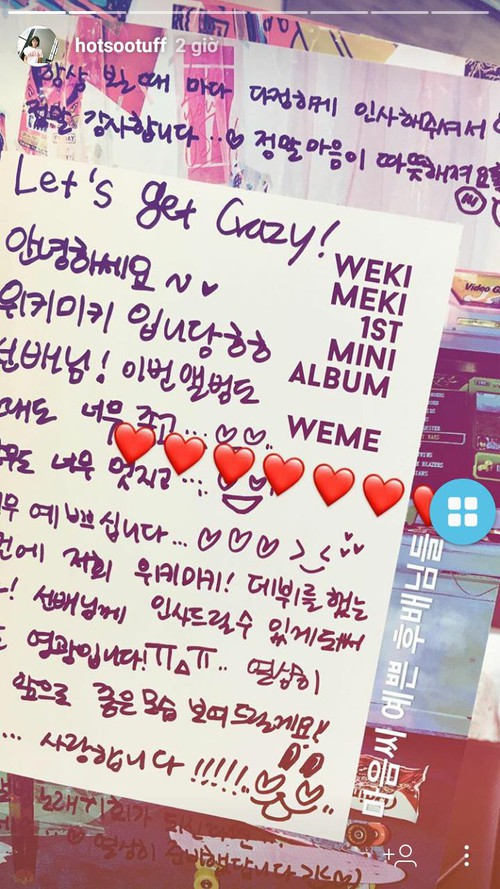 hotsootuff 2 giờ
항상 볼때 마다 다정하게 인사해주셔서
정말 감사합니다..♡ 정말 마음이 따뜻해져요
Let's get Crazy!
안녕하세요 ~♥
위키미키 입니당ㅎㅎ
선배님! 이번앨범도
너무 좋고...♡♡..
너무 멋지고...
예쁘십니다...♡♡♡
저희 위키미키! 데뷔를 했는
! 선배님께 인사드릴수 있게돼서
영광입니다!ㅠㅠ.. 열심히
앞으로 좋은모습 보여드릴게요!
... 사랑합니다!!!!!..
WEKI
MEKI
1ST
MINI
ALBUM
WEME
❤️❤️❤️❤️❤️❤️❤️
마음씨 예쁜 후배님들
Video G
열심히 준비했답니다